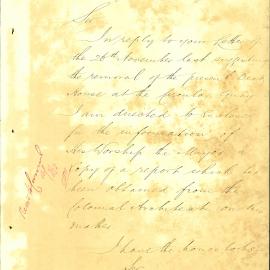 Sir
In reply to your letter of
the 26th November last suggesting
the removal of the present Dead
House at the Circular Quay
I am directed to enclose
for the information of
His Worship the Mayor a
Copy of a report which has
been obtained from the
Colonial Architect on the
matter
I have the honor to be
Sir